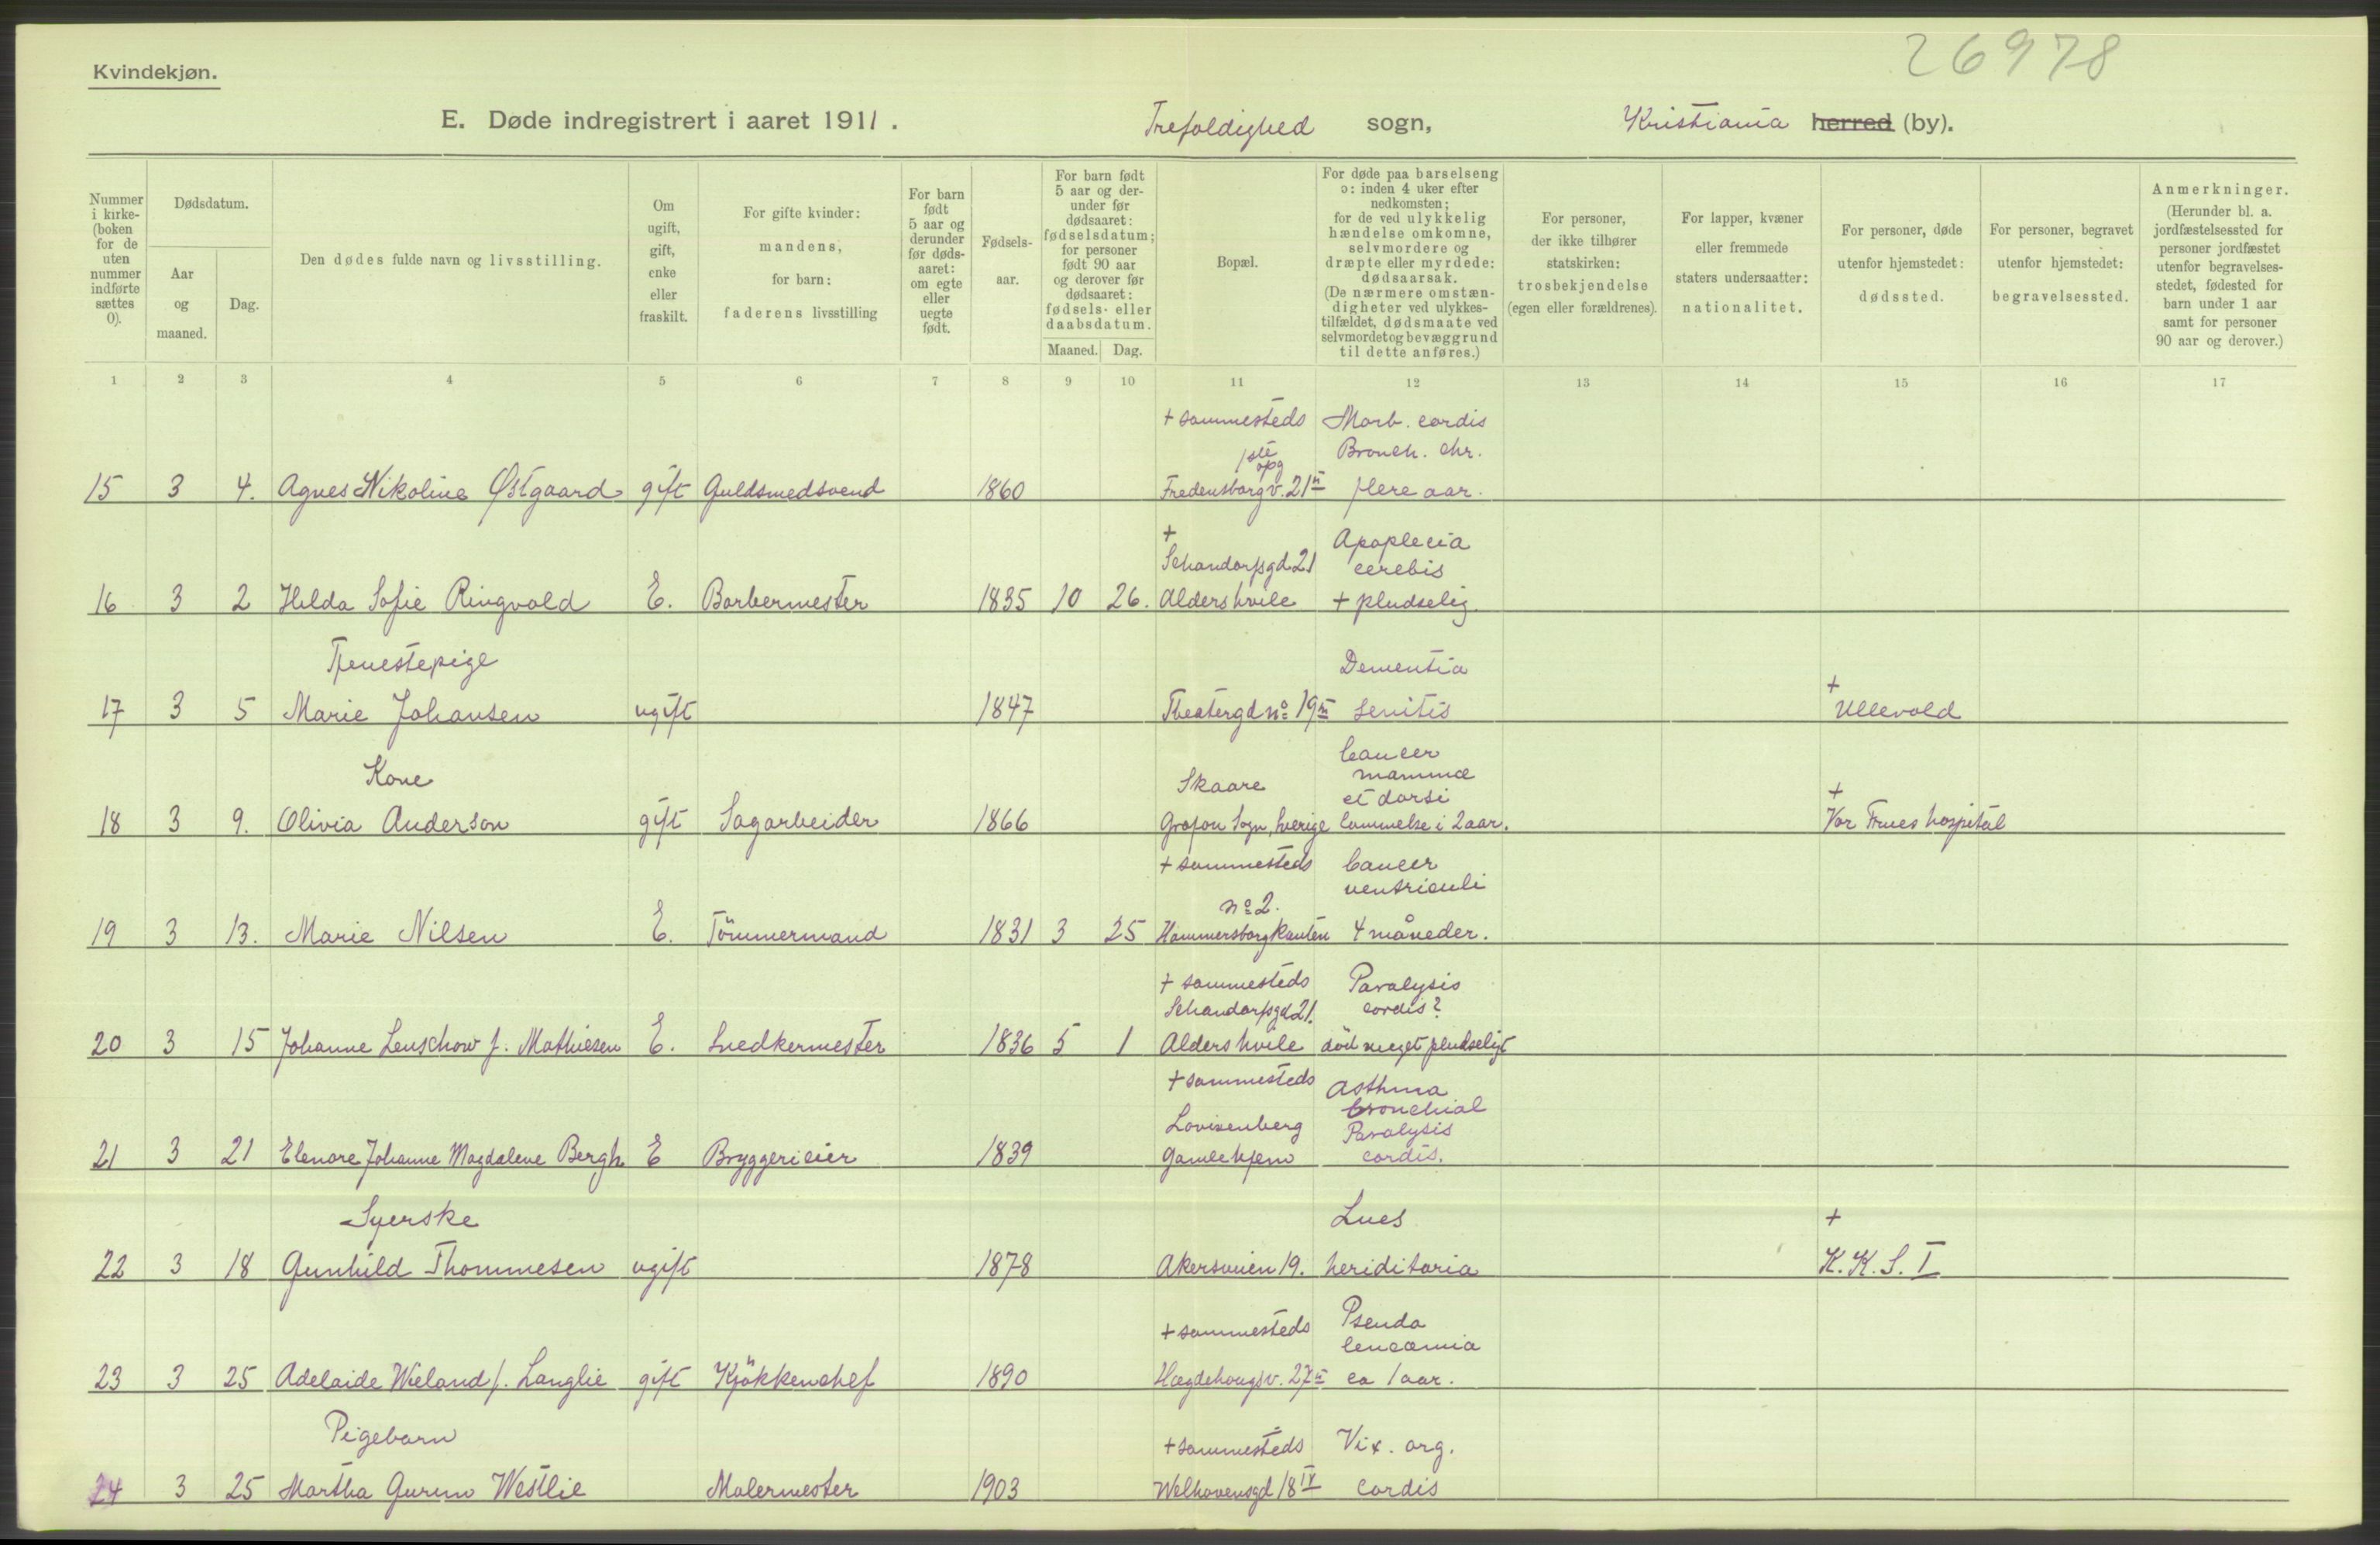 26978
Kvindekjøn.
E. Døde indregistrert i aaret 1911. Trefoldighed sogn, Kristiania herred (by).
Nummer i kirke-(boken for de uten nummer indførte sættes 0).
Dødsdatum.
Aar og maaned.
Dag.
Den dødes fulde navn og livsstilling.
Om ugift, gift, enke eller fraskilt.
For gifte kvinder: mandens, for barn: faderens livsstilling
For barn født 5 aar og derunder før døds-aaret: om egte eller uegte født.
Fødsels-aar.
For barn født 5 aar og der-under før dødsaaret: fødselsdatum; for personer født 90 aar og derover før dødsaaret: fødsels- eller daabsdatum.
Maaned. Dag.
Bopæl.
For døde paa barselseng ɔ: inden 4 uker efter nedkomsten; for de ved ulykkelig hændelse omkomne, selvmordere og dræpte eller myrdede: dødsaarsak. (De nærmere omstæn-digheter ved ulykkes-tilfældet, dødsmaate ved selvmord et og bevæggrund til dette anføres.)
For personer, der ikke tilhører statskirken: trosbekjendelse (egen eller forældrenes).
For lapper, kvæner eller fremmede staters undersaatter: nationalitet.
For personer, døde utenfor hjemstedet: dødssted.
For personer, begravet utenfor hjemstedet: begravelsessted.
Anmerkninger. (Herunder bl. a. jordfæstelsessted for personer jordfæstet utenfor begravelses-stedet, fødested for barn under 1 aar samt for personer 90 aar og derover.)
1 2 3 4 5 6 7 8 9 10 11 12 13 14 15 16 17
+ sammesteds Morb. cordis
1ste opg Bronch. chr.
15 3 4. Agnes Nikoline Østgaard gift Guldsmedsvend 1860 Fredensborgv. 21 II flere aar.
+ Apoplecia
Schandorfsgd 21 cerebis
16 3 2 Hilda Sofie Ringvold E. Barbermester 1835 10 26. Aldershvile + pludselig
Tjenestepige Dementia +
17 3 5 Marie Johansen ugift 1847 Theatergd no 19 III senitis Ullevold
Kone Skaare Cancer mammæ et dorsi +
18 3 9. Olivia Anderson gift Sagarbeider 1866 Grafon Sogn, Sverige lammelse i 2 aar. Vor Frues hospital
+ sammesteds Cancer
no 2. ventriculi
19 3 13. Marie Nilsen E. Tömmermand 1831 3 25 Hammersborgkanten 4 måneder.
+ sammesteds Paralysis
Schandorfsgd 21. cordis?
20 3 15 Johanne Lenschow f. Mathiesen E. Snedkermester 1836 5 1 Aldershvile död meget pludseligt
+ sammesteds Asthma bronchial
Lovisenberg Paralysis
21 3 21 Elenore Johanne Magdalene Bergh E Bryggerieier 1839 Gamlehjem cordis.
Syerske Lues +
22 3 18 Gunhild Thommesen ugift 1878 Akersveien 19. heriditaria K. K. S. I
+ sammesteds Pseudo leucæmia
23 3 25 Adelaide Wieland f. Langlie gift Kjökkenchef 1890 Hægdehougsv. 27 II ca 1 aar.
Pigebarn + sammesteds Vix. org.
24 3 25 Martha Gurine Westlie Malermester 1903 Welhavensgd 18 IV Cordis